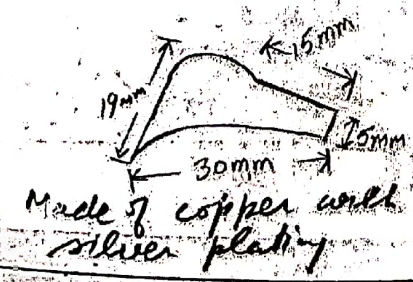 15mm
19mm
5mm
30mm
Made of copper with
silver plating